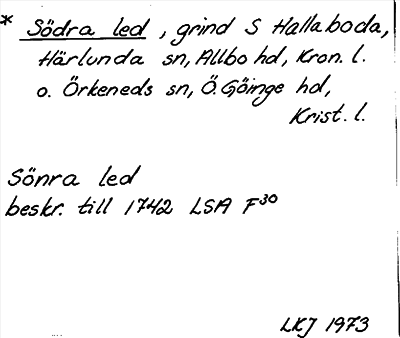 * Södra led, grind S Hallaboda,
Härlunda sn, Allbo hd, Kron. l.
o. Örkeneds sn, Ö. Göinge hd,
Krist. l.
Sönra led
beskr. till 1742 LSA F30
LKJ 1973